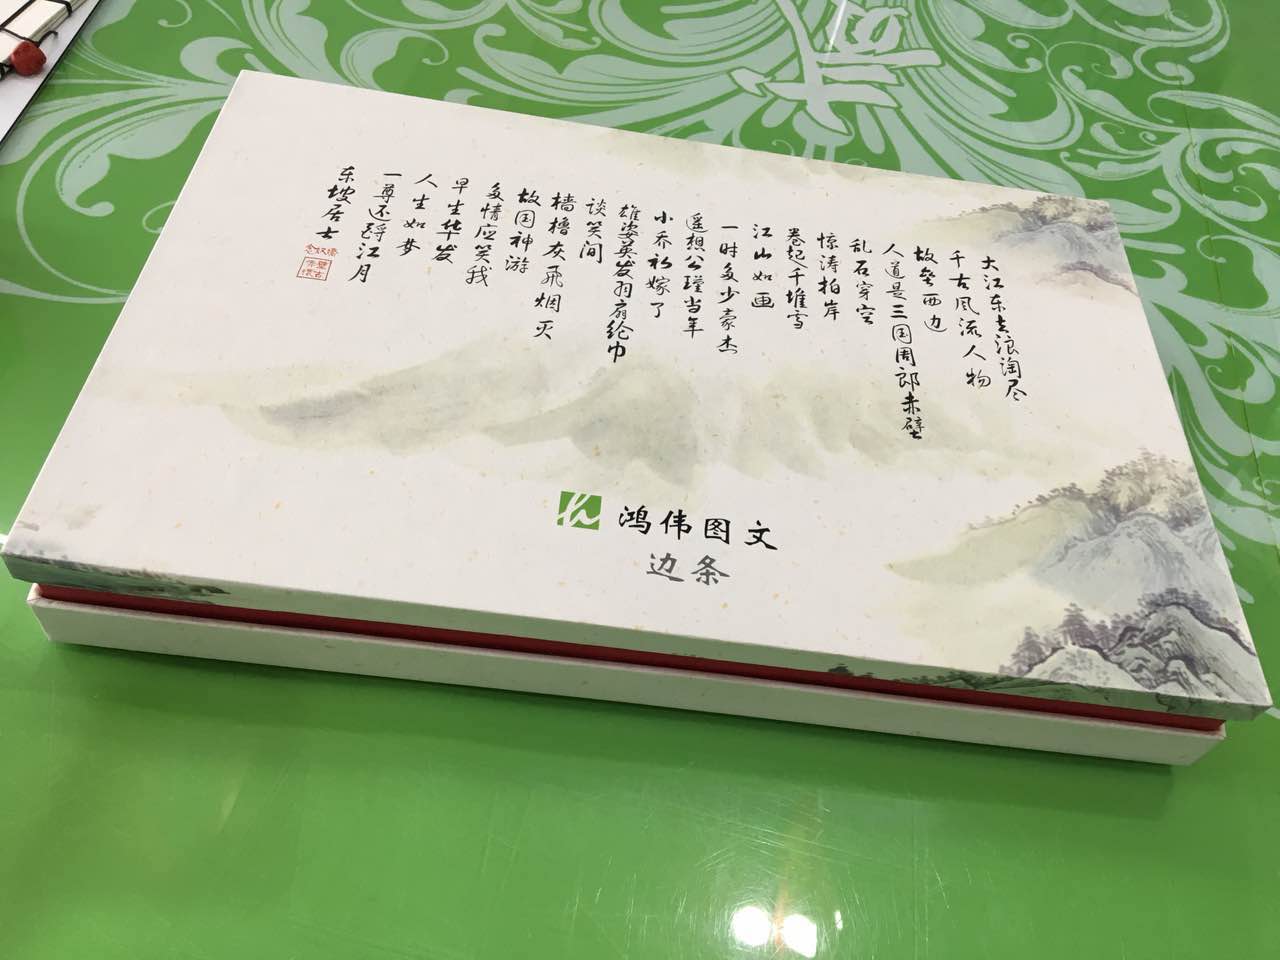 大江东去浪淘尽
千古风流人物
故垒西边
人道是三国周郎赤壁
乱石穿空
惊涛拍岸
卷起千堆雪
江山如画
一时多少豪杰
遥想公瑾当年
小乔初嫁了
雄姿英发羽扇纶巾
谈笑间
樯橹灰飞烟灭
故国神游
多情应笑我
早生华发
人生如梦
一尊还酹江月
东坡居士
鸿伟图文
边条